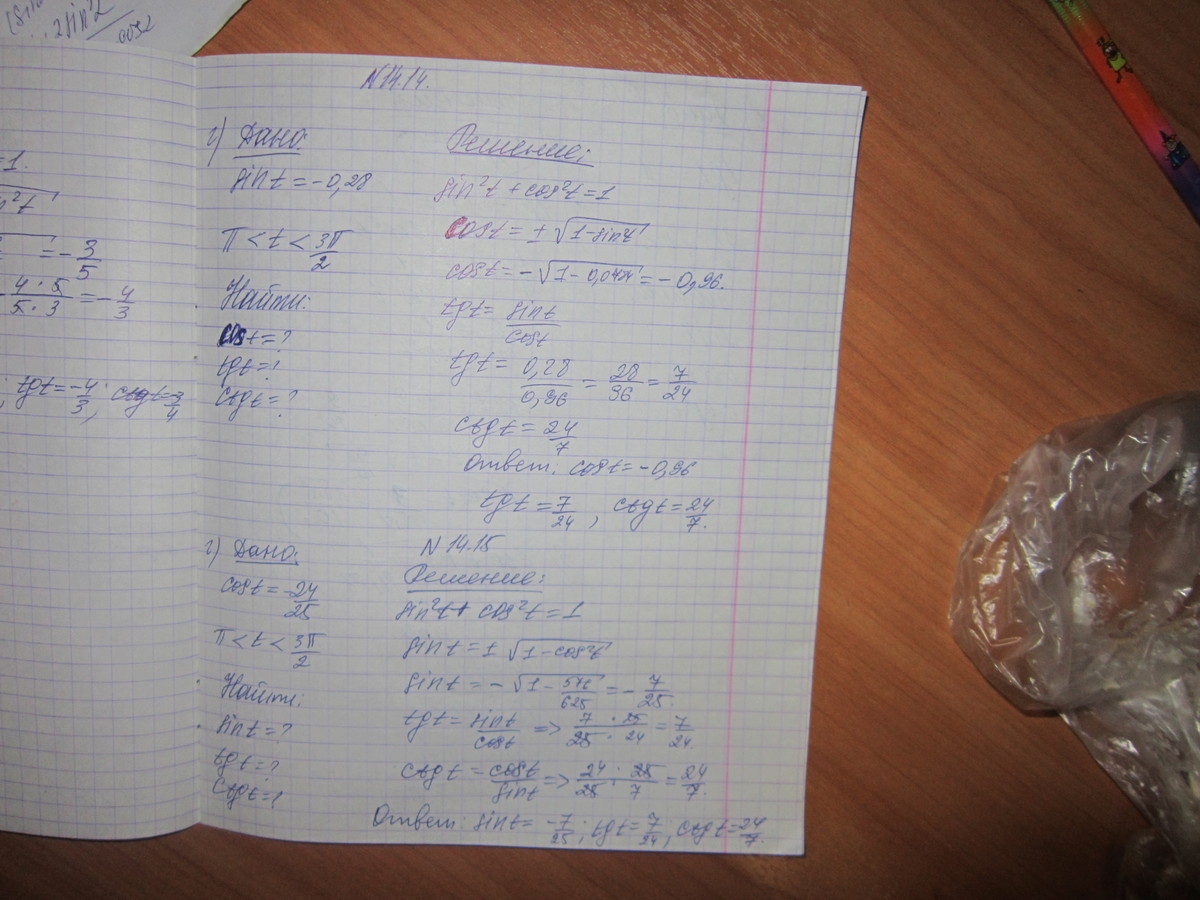 2sin²2
cos2
=1.
n²t
= -3/5
4·5/5·3 = -4/3
; tgt = -4/3; ctgt = 3/4
N14.14.
г) Дано:
sint = -0,28
π < t < 3π/2
Найти:
cost = ?
tgt = ?
ctgt = ?
Решение:
sin²t + cos²t = 1
cost = ± √1-sin²t
cost = - √1-0,0784 = -0,96.
tgt = sint/cost
tgt = 0,28/0,96 = 28/96 = 7/24
ctgt = 24/7
Ответ. cost = -0,96
tgt = 7/24, ctgt = 24/7.
N 14.15
г) Дано:
cost = -24/25
π < t < 3π/2
Найти:
sint = ?
tgt = ?
ctgt = ?
Решение:
sin²t + cos²t = 1
sint = ± √1-cos²t
sint = - √1-576/625 = -7/25.
tgt = sint/cost => 7/25 · 25/24 = 7/24
ctgt = cost/sint => 24/25 · 25/7 = 24/7.
Ответ: sint = -7/25; tgt = 7/24, ctgt = 24/7.